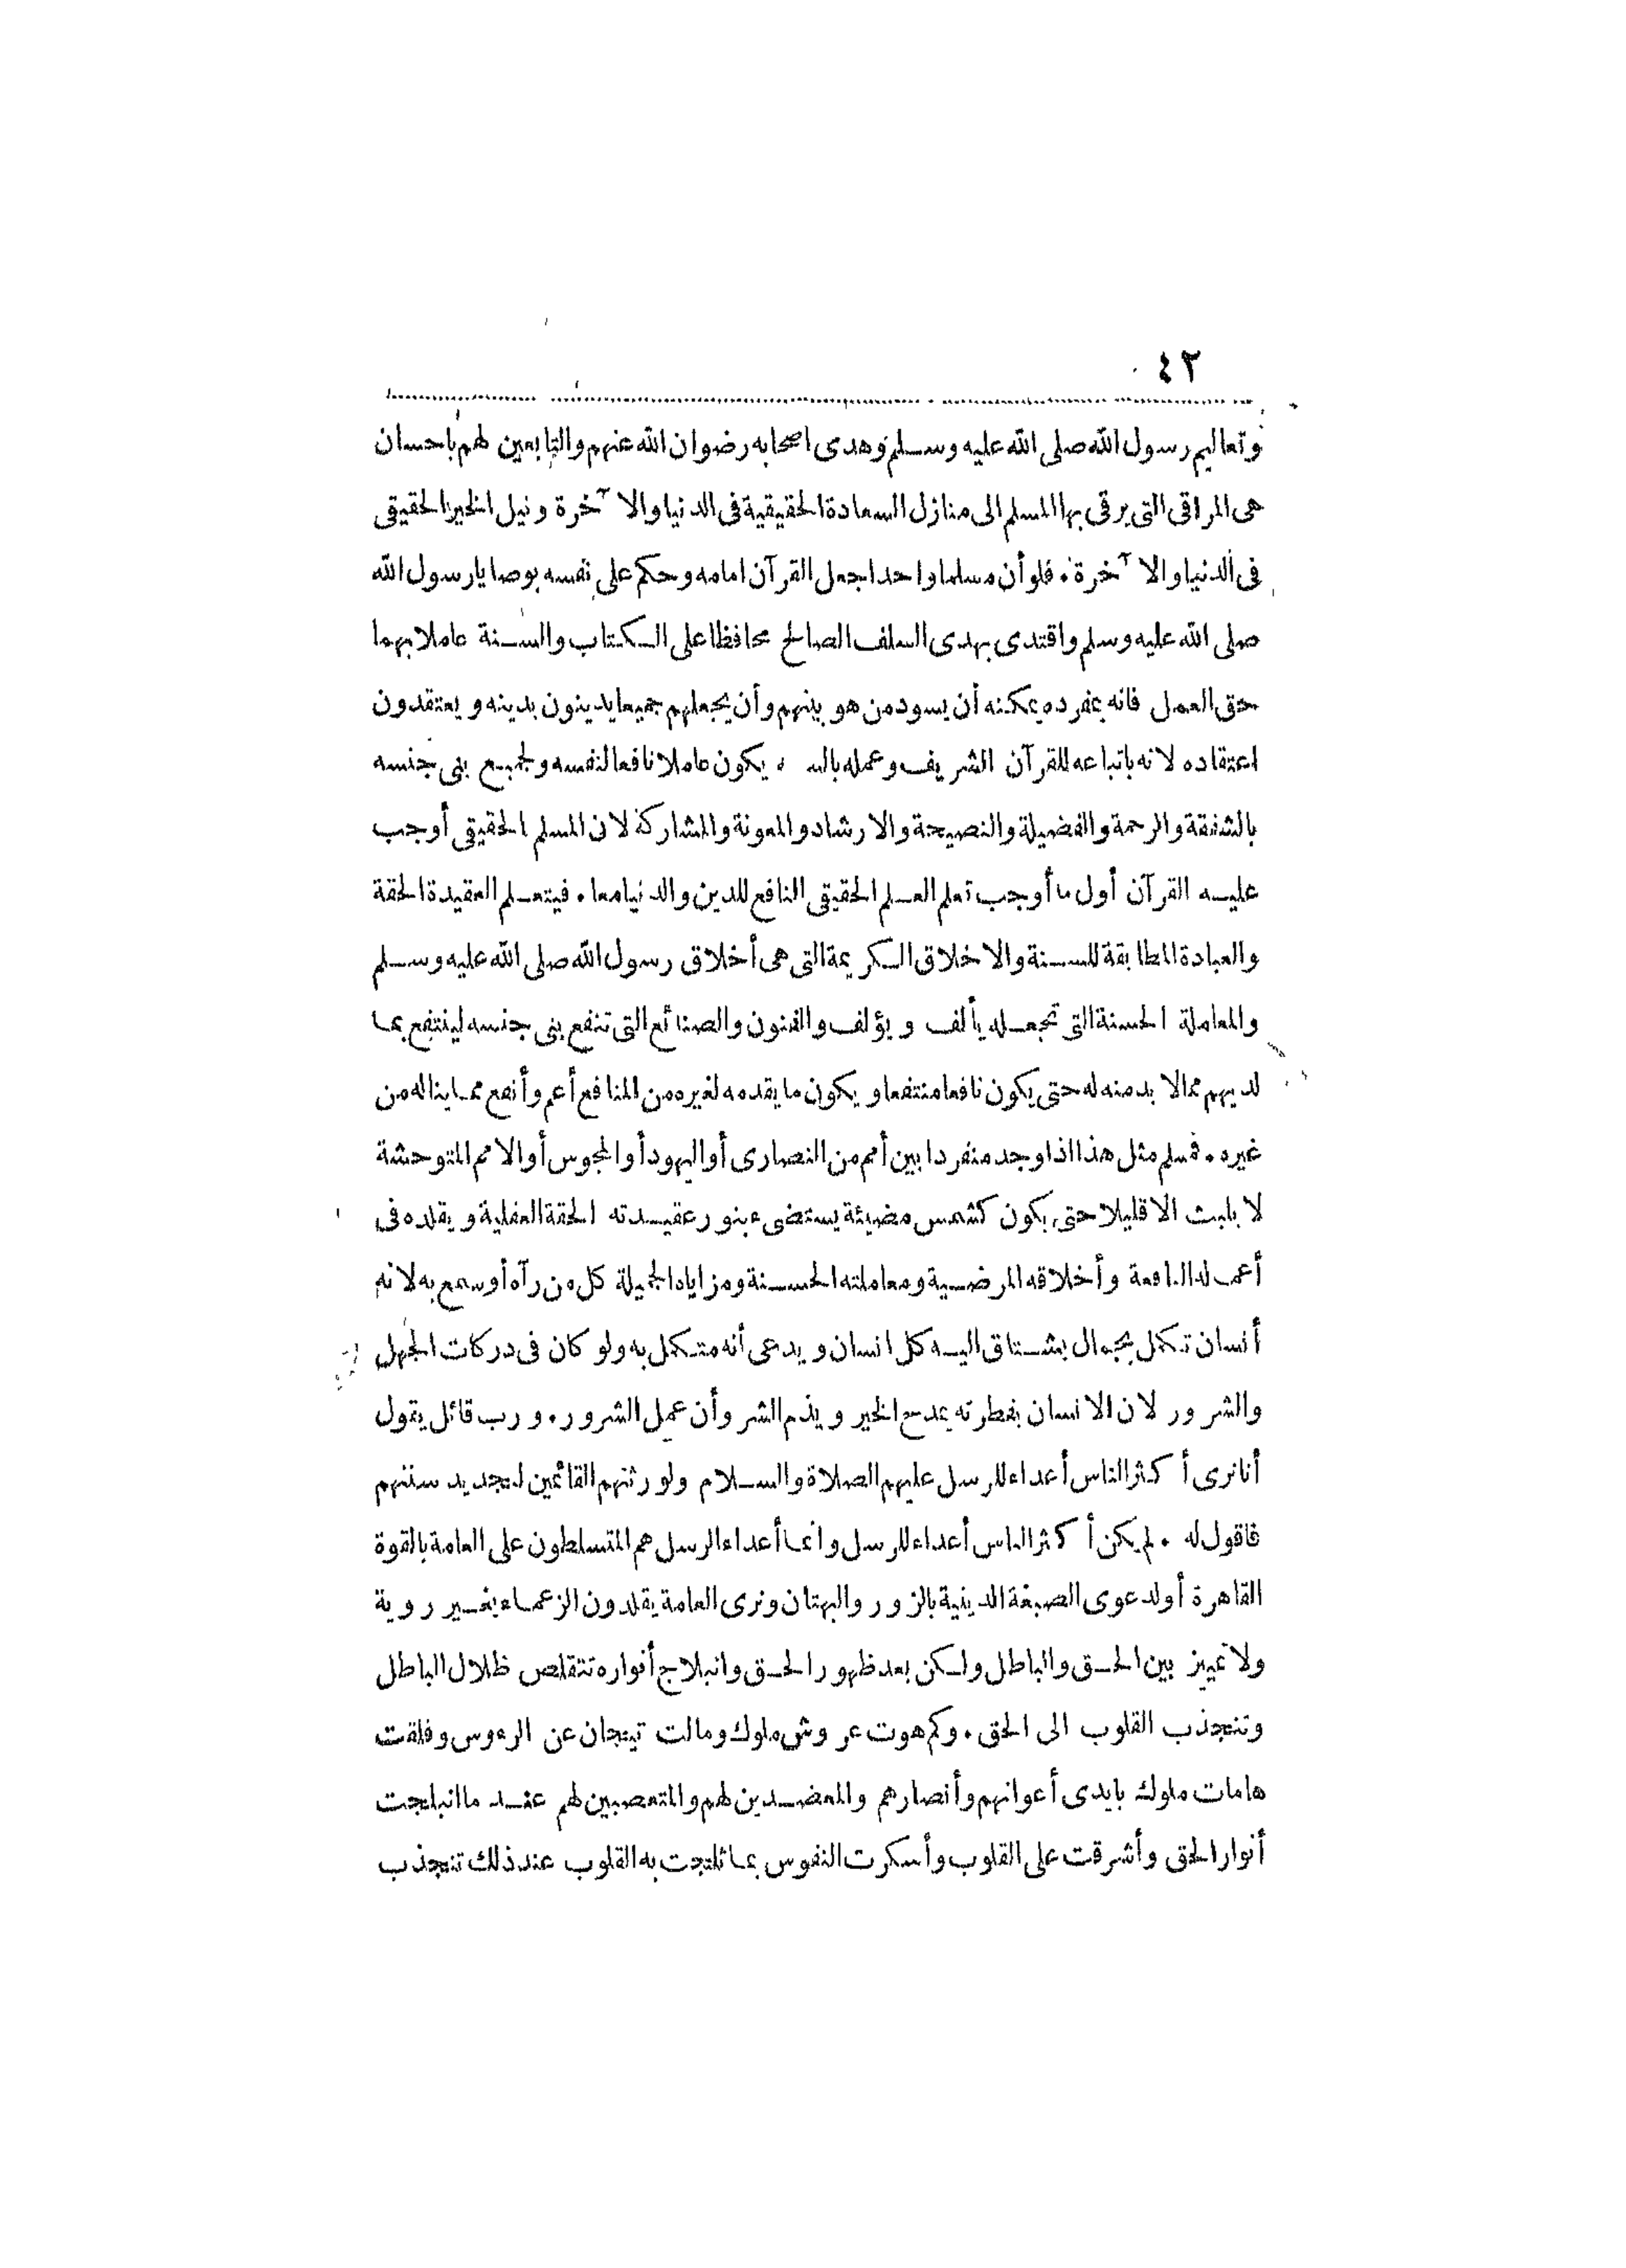 ٤٢
وتعاليم رسول الله صلى الله عليه وسلم وهدى اصحابه رضوان الله عنهم والتابعين لهم باحسان
هى المراقى التى يرقى بها المسلم الى منازل السعادة الحقيقية فى الدنيا والآخرة ونيل الخير الحقيقى
فى الدنيا والآخرة. فلو أن مسلما واحدا جعل القرآن امامه وحكم على نفسه بوصايا رسول الله
صلى الله عليه وسلم واقتدى بهدى السلف الصالح محافظا على الكتاب والسنة عاملا بهما
حق العمل فانه بمفرده يمكنه أن يسود من هو بينهم وأن يجعلهم جميعا يدينون بدينه ويعتقدون
اعتقاده لانه باتباعه للقرآن الشريف وعمله يكون عاملا نافعا لنفسه ولجميع بنى جنسه
بالشفقة والرحمة والفضيلة والنصيحة والارشاد والمعونة والمشاركة لان المسلم الحقيقى أوجب
عليه القرآن أول ما أوجب تعلم العلم الحقيقى النافع للدين والدنيا معا. فيتعلم العقيدة الحقة
والعبادة المطابقة للسنة والاخلاق الكريمة التى هى أخلاق رسول الله صلى الله عليه وسلم
والمعاملة الحسنة التى تجعله يألف ويؤلف والفنون والصنائع التى تنفع بنى جنسه لينتفع بما
لديهم مما لا بد منه له حتى يكون نافعا منتفعا ويكون ما يقدمه لغيره من المنافع أعم وأنفع مما يناله من
غيره. فمسلم مثل هذا اذا وجد منفردا بين أمم من النصارى أو اليهود أو المجوس أو الامم المتوحشة
لا يلبث الا قليلا حتى يكون كشمس مضيئة يستضىء بنور عقيدته الحقة العقلية ويقلده فى
أعماله النافعة وأخلاقه المرضية ومعاملته الحسنة ومزاياه الجميلة كل من رآه أو سمع به لانه
أنسان تكمل بجمال يشتاق اليه كل انسان ويدعى أنه متكمل به ولو كان فى دركات الجهل
والشرور لان الانسان بفطرته يمدح الخير ويذم الشر وأن عمل الشرور. ورب قائل يقول
أنا نرى أكثر الناس أعداء للرسل عليهم الصلاة والسلام ولورثتهم القائمين لتجديد سننهم
فاقول له. لم يكن أكثر الناس أعداء للرسل وانما أعداء الرسل هم المتسلطون على العامة بالقوة
القاهرة أو لدعوى الصبغة الدينية بالزور والبهتان ونرى العامة يقلدون الزعماء بغير روية
ولا تمييز بين الحق والباطل ولكن بعد ظهور الحق وانبلاج أنواره تتقلص ظلال الباطل
وتنجذب القلوب الى الحق. وكم هوت عروش ملوك ومالت تيجان عن الرءوس وفلقت
هامات ملوك بايدى أعوانهم وأنصارهم والمعضدين لهم والمتعصبين لهم عند ما انبلجت
أنوار الحق وأشرقت على القلوب وأسكرت النفوس بما ثلجت به القلوب عند ذلك تنجذب